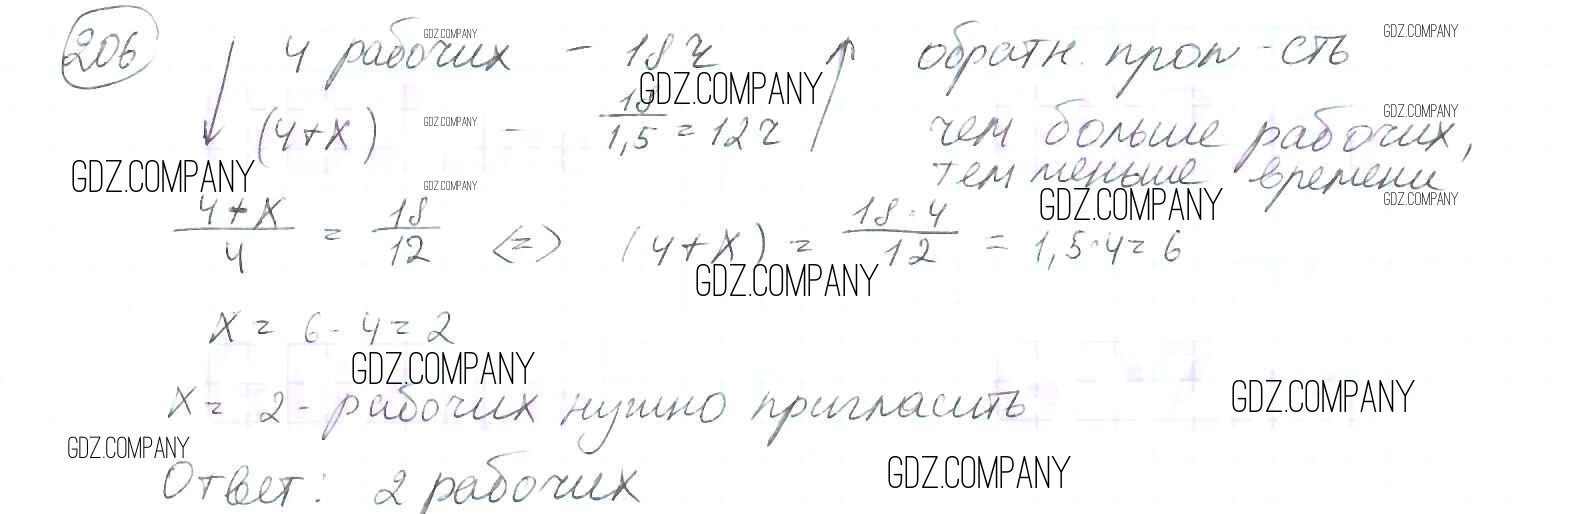 206 4 рабочих - 18 ч обратн. проп-сть
GDZ.COMPANY GDZ.COMPANY
GDZ.COMPANY
(4+x) - 18/1,5 = 12 ч чем больше рабочих,
GDZ.COMPANY GDZ.COMPANY
тем меньше времени
GDZ.COMPANY GDZ.COMPANY GDZ.COMPANY GDZ.COMPANY
(4+x)/4 = 18/12 <=> (4+x) = (18·4)/12 = 1,5·4=6
GDZ.COMPANY
x = 6 - 4 = 2
GDZ.COMPANY
GDZ.COMPANY
x = 2 - рабочих нужно пригласить
GDZ.COMPANY
GDZ.COMPANY
Ответ: 2 рабочих